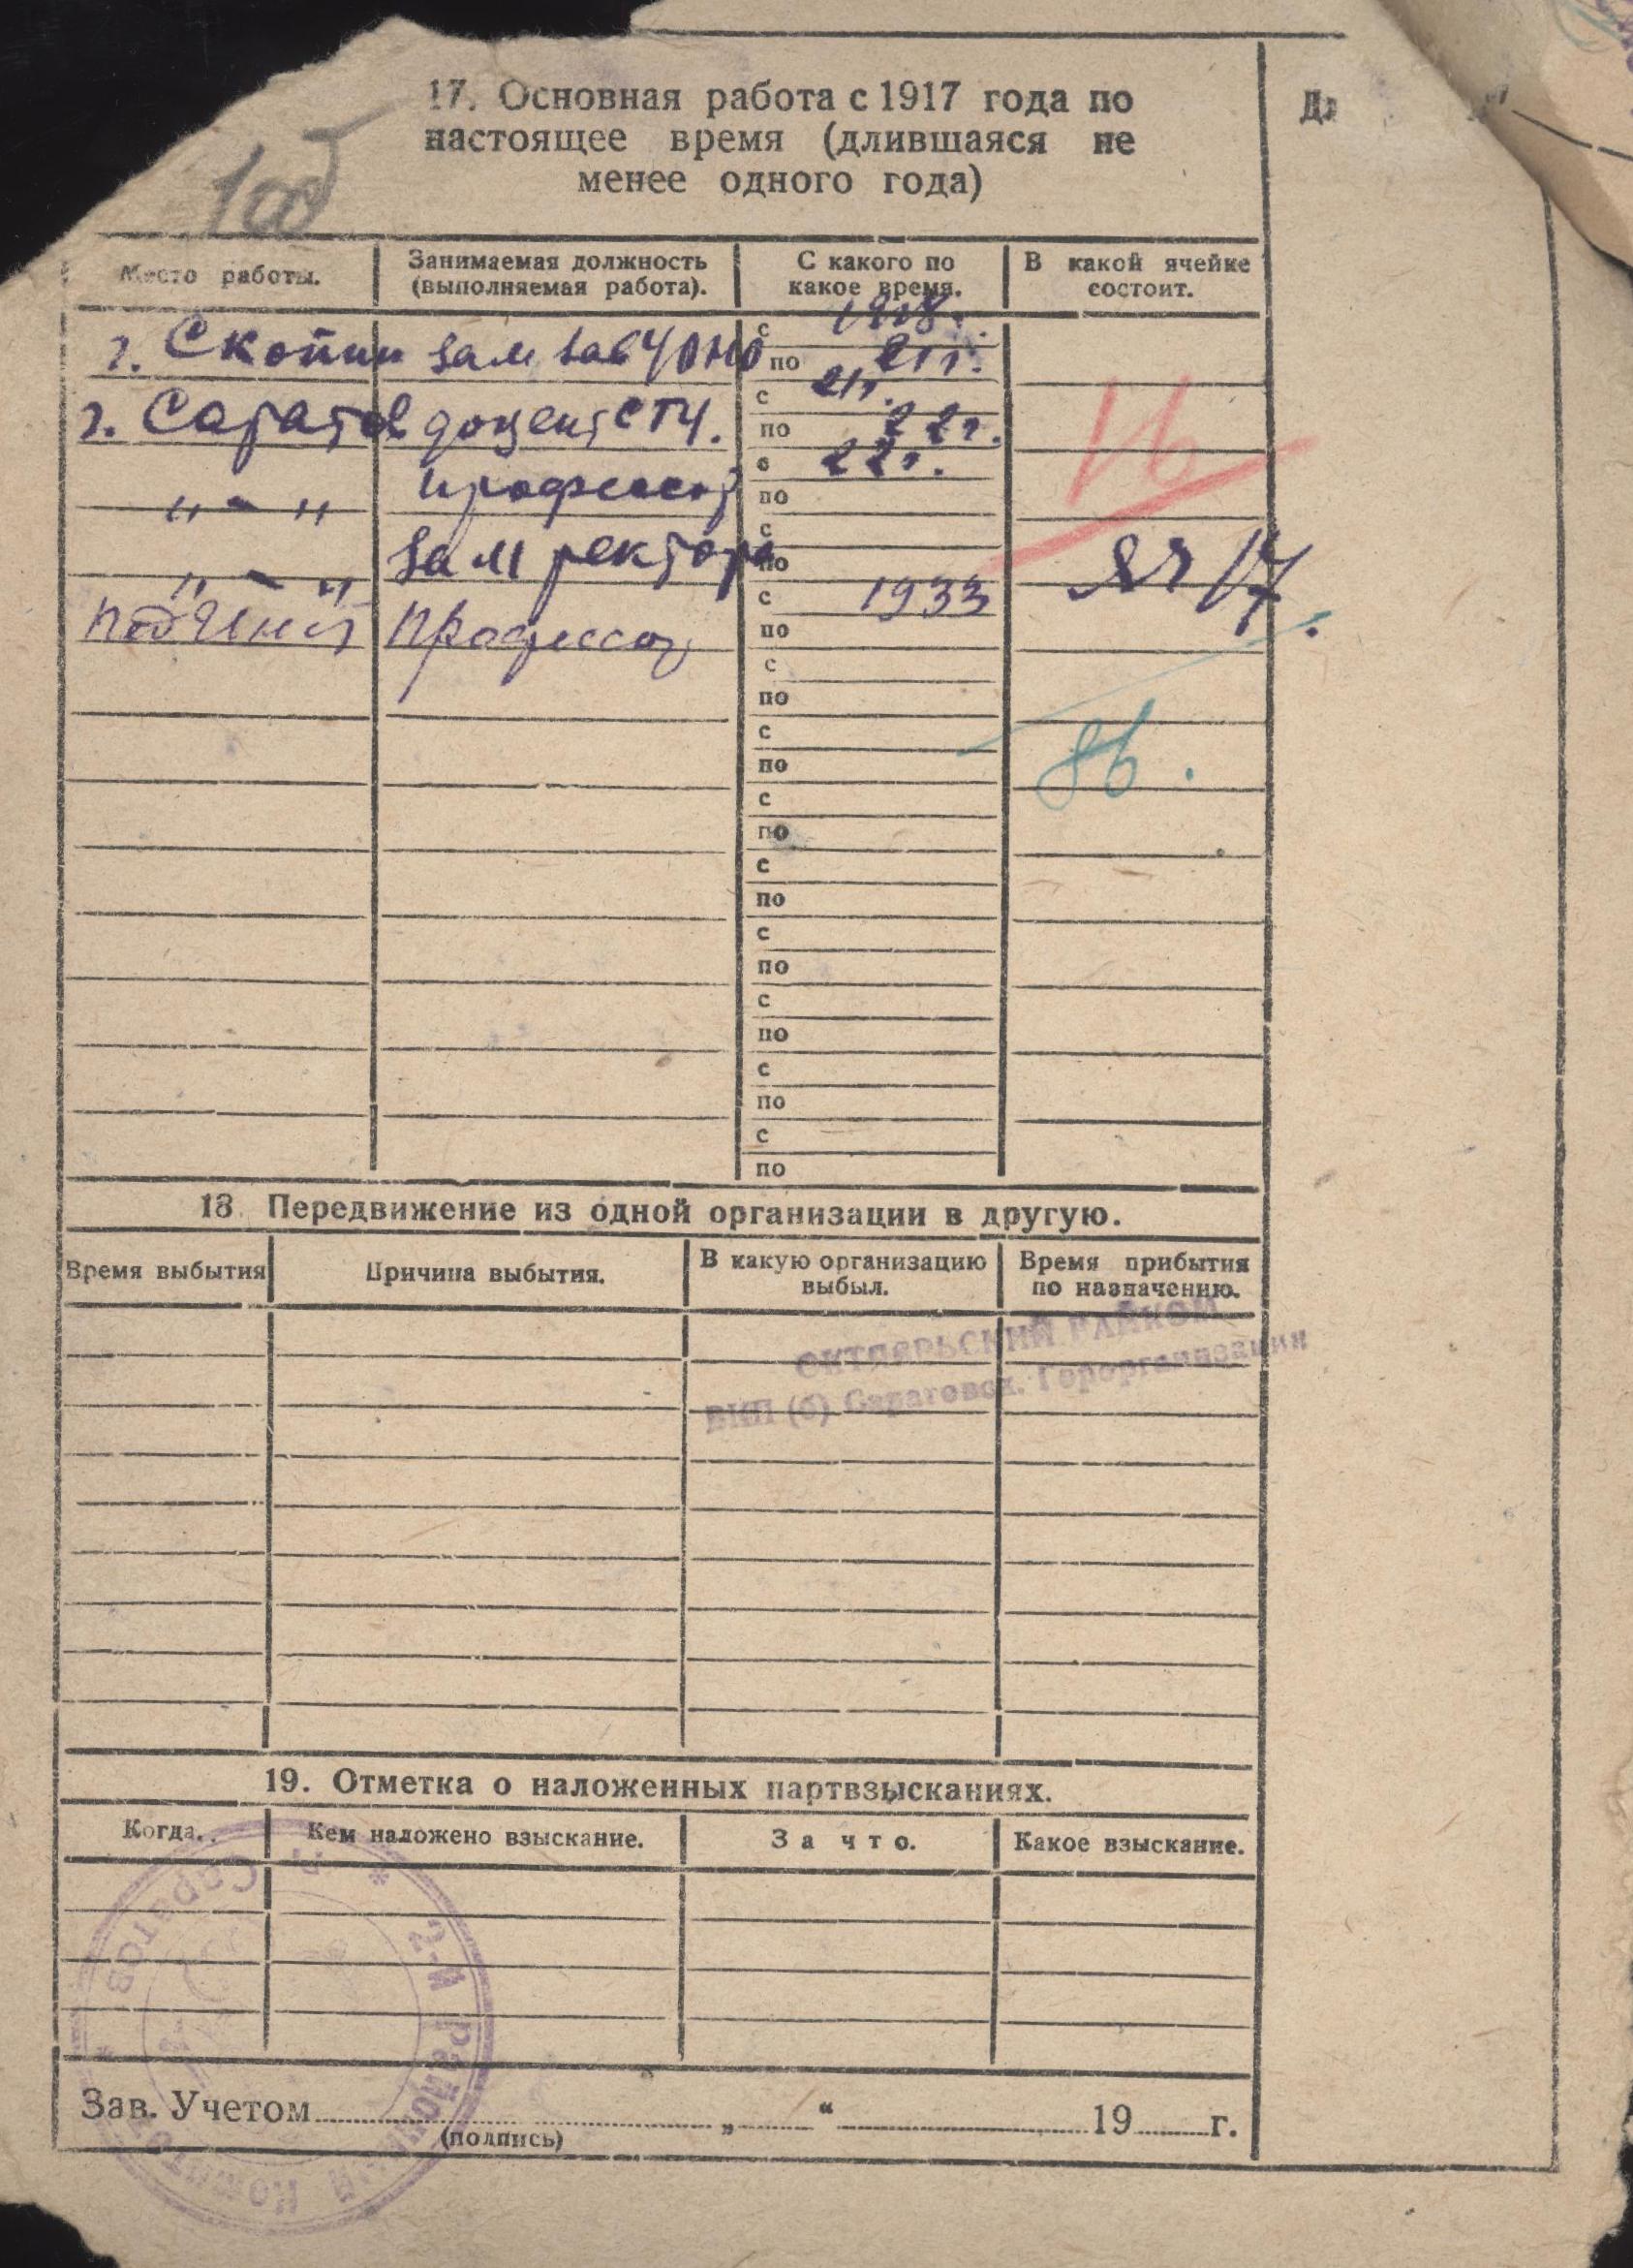 17. Основная работа с 1917 года по
настоящее время (длившаяся не
менее одного года)
Место работы.
Занимаемая должность
(выполняемая работа).
С какого по
какое время.
В какой ячейке
состоит.
г. Скопин зам зав УОНО с 1918.
по 21 г.
г. Саратов доцент СГУ. с 21 г.
по 22 г.
" - " профессор с 22 г.
по
" - " зам ректора с
по
Яч 17.
профессор с 1933
по
с
по
с
по
8б.
с
по
с
по
с
по
с
по
с
по
с
по
18. Передвижение из одной организации в другую.
Время выбытия
Причина выбытия.
В какую организацию
выбыл.
Время прибытия
по назначению.
ОКТЯБРЬСКИЙ РАЙКОМ
ВКП (б) Саратовск. Горорганизации
19. Отметка о наложенных партвзысканиях.
Когда.
Кем наложено взыскание.
За что.
Какое взыскание.
Зав. Учетом „ “ 19 г.
(подпись)